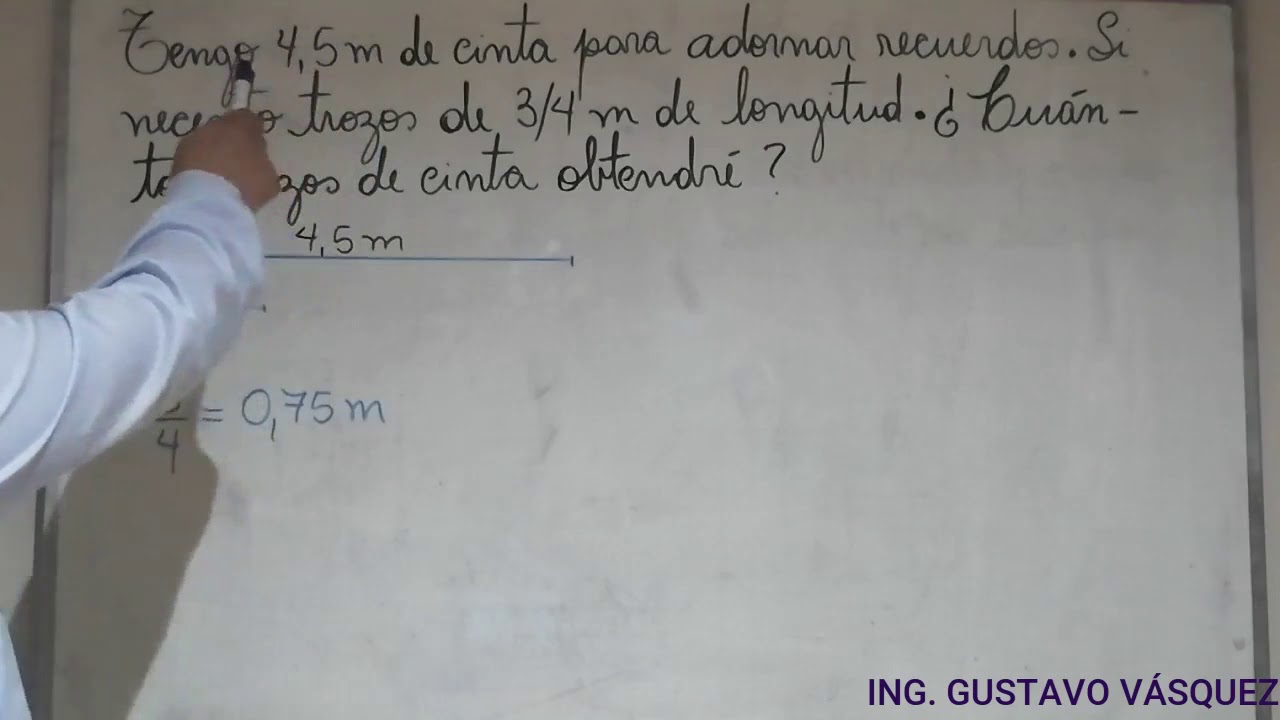 Tengo 4,5 m de cinta para adornar recuerdos. Si
trozos de 3/4 m de longitud. ¿ Cuán-
de cinta obtendré ?
4,5 m
4 = 0,75 m
ING. GUSTAVO VÁSQUEZ